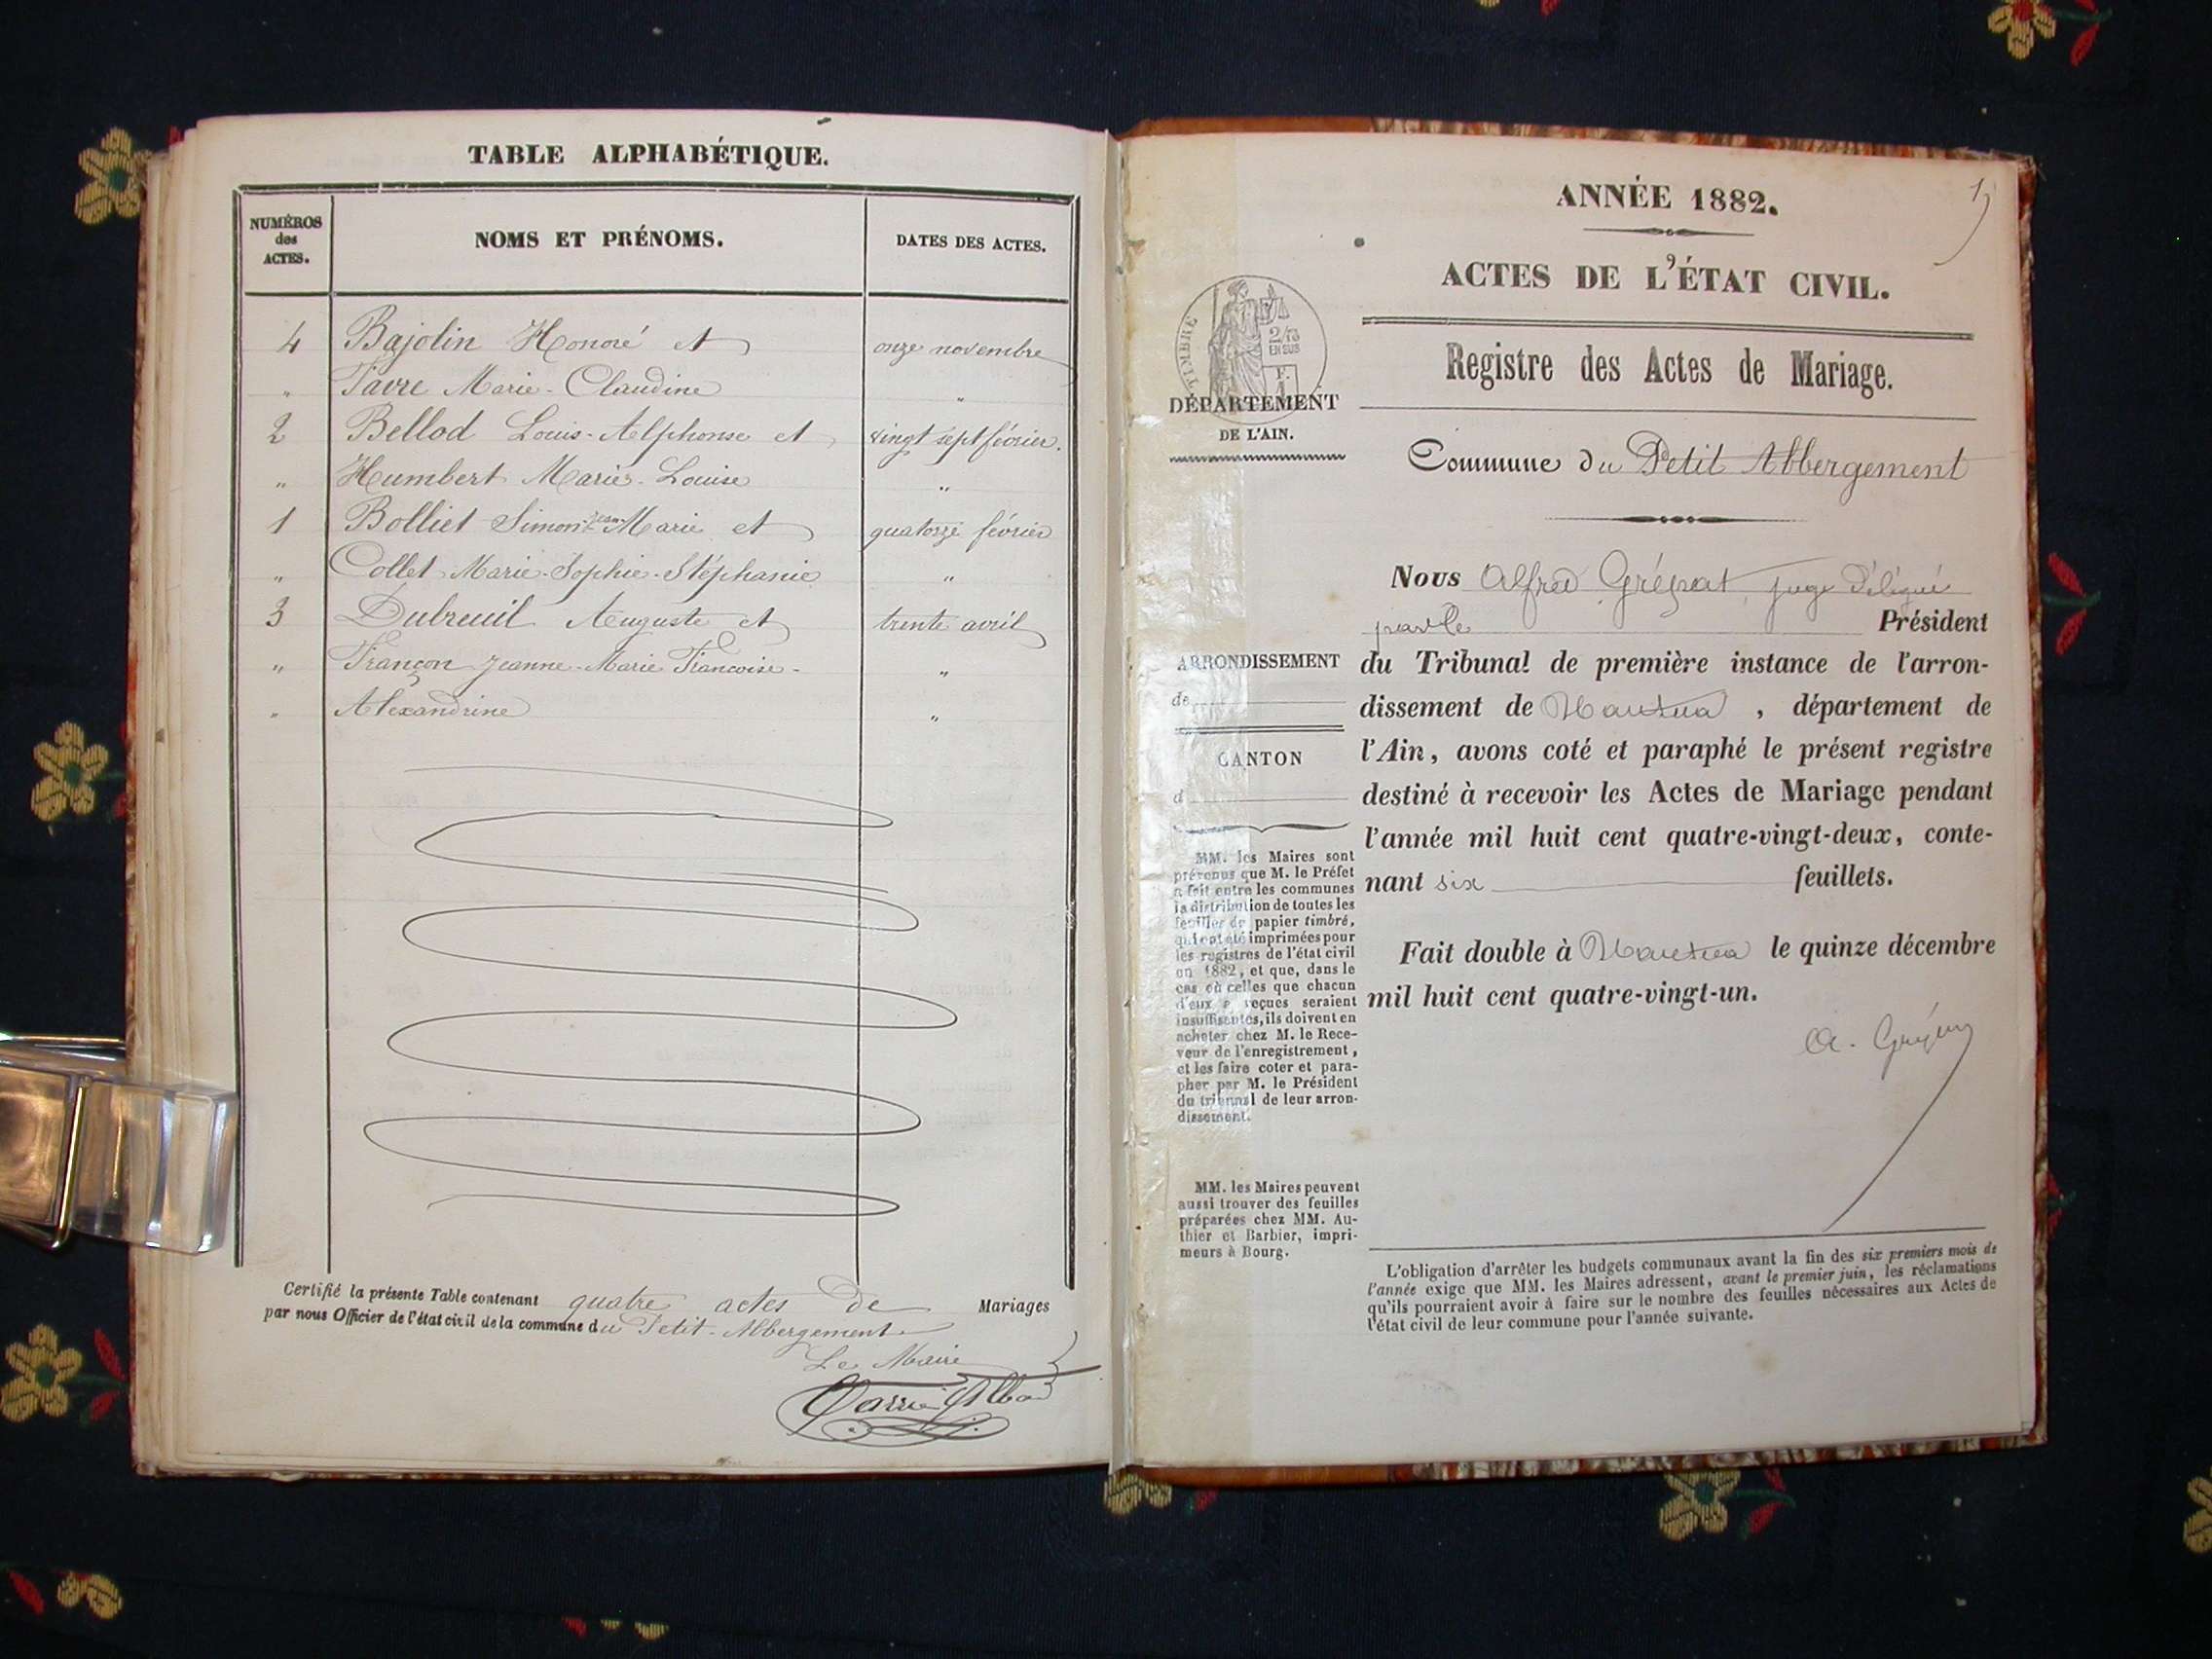 TABLE ALPHABÉTIQUE.
NUMÉROS des ACTES. NOMS ET PRÉNOMS. DATES DES ACTES.
4 Bajolin Honoré et onze novembre
" Favre Marie-Claudine "
2 Bellod Louis-Alphonse et vingt sept février.
" Humbert Marie-Louise "
1 Bolliet Simon-Jean-Marie et quatorze février
" Collet Marie-Sophie-Stéphanie "
3 Dubreuil Auguste et trente avril
" Françon Jeanne-Marie Francoise- "
" Alexandrine "
Certifié la présente Table contenant quatre actes de Mariages
par nous Officier de l'état civil de la commune du Petit-Abbergement
Le Maire
ANNÉE 1882.
ACTES DE L'ÉTAT CIVIL.
Registre des Actes de Mariage.
Commune du Petit Abbergement
TIMBRE
2/10
EN SUS
F.
1
DÉPARTEMENT
DE L'AIN.
ARRONDISSEMENT
de
CANTON
d
MM. les Maires sont
prévenus que M. le Préfet
a fait entre les communes
la distribution de toutes les
feuilles de papier timbré,
qui ont été imprimées pour
les registres de l'état civil
en 1882, et que, dans le
cas où celles que chacun
d'eux a reçues seraient
insuffisantes, ils doivent en
acheter chez M. le Rece-
veur de l'enregistrement,
et les faire coter et para-
pher par M. le Président
du tribunal de leur arron-
dissement.
MM. les Maires peuvent
aussi trouver des feuilles
préparées chez MM. Au-
thier et Barbier, impri-
meurs à Bourg.
Nous Alfred Grépat, juge délégué
par le Président
du Tribunal de première instance de l'arron-
dissement de Nantua, département de
l'Ain, avons coté et paraphé le présent registre
destiné à recevoir les Actes de Mariage pendant
l'année mil huit cent quatre-vingt-deux, conte-
nant six feuillets.
Fait double à Nantua le quinze décembre
mil huit cent quatre-vingt-un.
L'obligation d'arrêter les budgets communaux avant la fin des six premiers mois de
l'année exige que MM. les Maires adressent, avant le premier juin, les réclamations
qu'ils pourraient avoir à faire sur le nombre des feuilles nécessaires aux Actes de
l'état civil de leur commune pour l'année suivante.